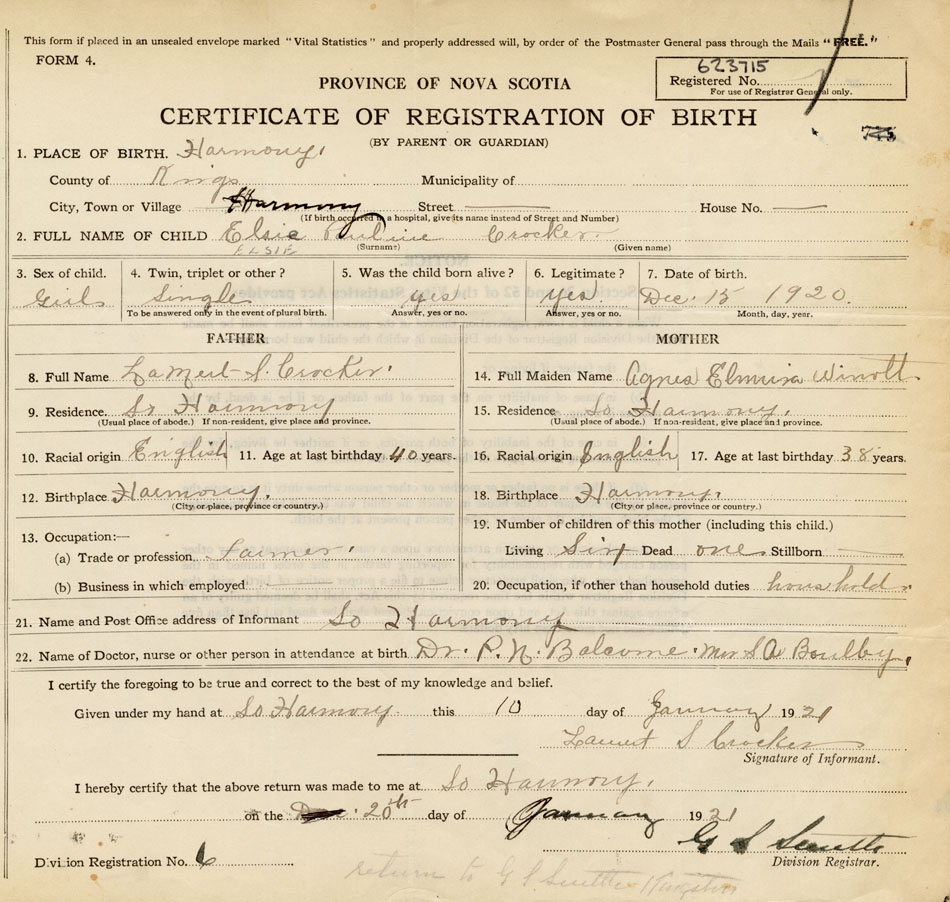 This form if placed in an unsealed envelope marked "Vital Statistics" and properly addressed will, by order of the Postmaster General pass through the Mails "FREE."
FORM 4.
623715
Registered No.
For use of Registrar General only.
PROVINCE OF NOVA SCOTIA
CERTIFICATE OF REGISTRATION OF BIRTH
(BY PARENT OR GUARDIAN)
1. PLACE OF BIRTH. Harmony.
County of Kings Municipality of
City, Town or Village Harmony Street House No.
(If birth occurred in a hospital, give its name instead of Street and Number)
2. FULL NAME OF CHILD Elsie Pauline Crocker.
ELSIE (Surname) (Given name)
3. Sex of child. 4. Twin, triplet or other? 5. Was the child born alive? 6. Legitimate? 7. Date of birth.
Girl Single yes Yes Dec. 15 1920.
To be answered only in the event of plural birth. Answer, yes or no. Answer, yes or no. Month, day, year.
FATHER MOTHER
8. Full Name S. Crocker.
14. Full Maiden Name Agnes
9. Residence. So Harmony
(Usual place of abode.) If non-resident, give place and province.
15. Residence So Harmony.
(Usual place of abode.) If non-resident, give place and province.
10. Racial origin English 11. Age at last birthday 40 years.
16. Racial origin English 17. Age at last birthday 38 years.
12. Birthplace Harmony.
(City or place, province or country.)
18. Birthplace Harmony.
(City or place, province or country.)
13. Occupation:—
(a) Trade or profession. Farmer.
(b) Business in which employed
19. Number of children of this mother (including this child.)
Living Six Dead one Stillborn
20. Occupation, if other than household duties household
21. Name and Post Office address of Informant So Harmony
22. Name of Doctor, nurse or other person in attendance at birth Dr. P. N. Balcome. Mrs S A
I certify the foregoing to be true and correct to the best of my knowledge and belief.
Given under my hand at So Harmony. this 10 day of January 1921
S Crocker
Signature of Informant.
I hereby certify that the above return was made to me at So Harmony.
on the 20th day of January 1921
G S
Division Registrar.
Division Registration No. 6
return to G S Kingston